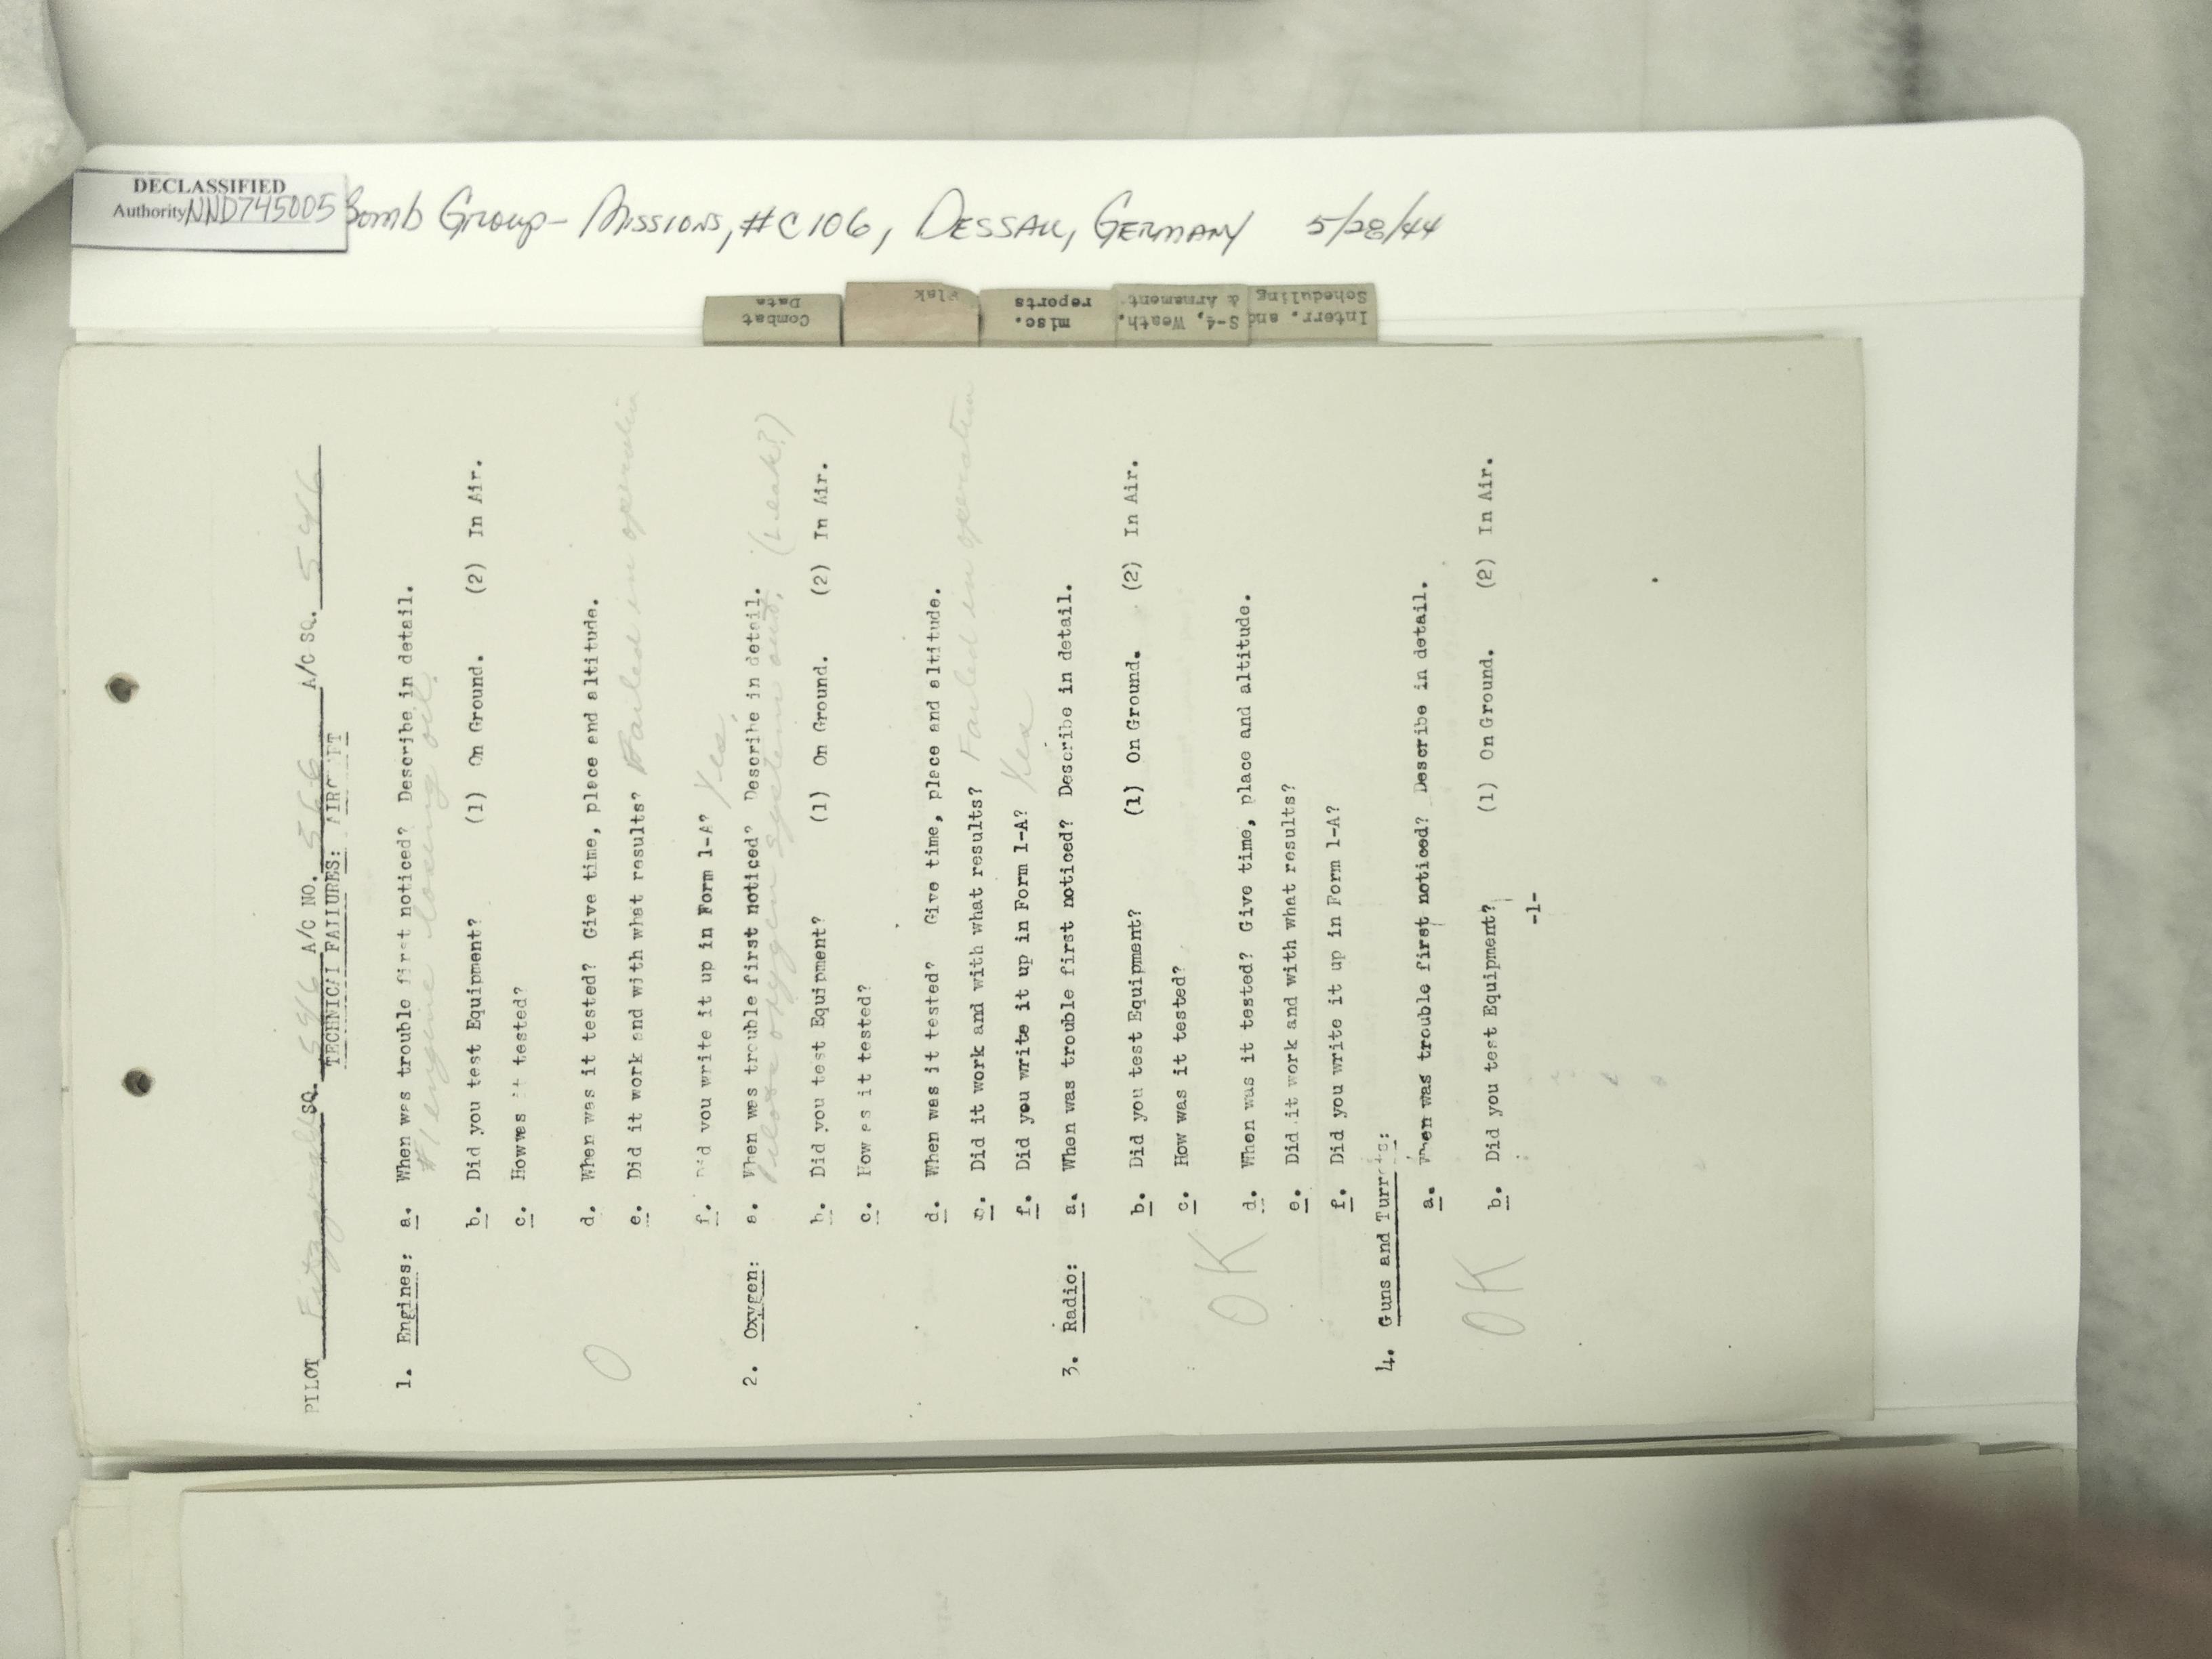 DECLASSIFIED
Authority NND745005
Bomb Group - Missions, #C106, DESSAU, GERMANY 5/28/44
Combat Data
Flak
misc. reports
S-4, Weath. & Armament
Interr. and Scheduling
PILOT SQ. 546 A/C NO. A/C SQ. 546
TECHNICAL FAILURES: AIRCRAFT
1. Engines: a. When was trouble first noticed? Describe in detail.
#1 engine losing oil.
b. Did you test Equipment? (1) On Ground. (2) In Air.
c. How was it tested?
d. When was it tested? Give time, place and altitude.
O
e. Did it work and with what results? Failed in operation
f. Did you write it up in Form 1-A? Yes
2. Oxygen: a. When was trouble first noticed? Describe in detail.
oxygen system out, (Leak?)
b. Did you test Equipment? (1) On Ground. (2) In Air.
c. How as it tested?
d. When was it tested? Give time, place and altitude.
e. Did it work and with what results? Failed in operation
f. Did you write it up in Form 1-A? Yes
3. Radio: a. When was trouble first noticed? Describe in detail.
b. Did you test Equipment? (1) On Ground. (2) In Air.
c. How was it tested?
OK
d. When was it tested? Give time, place and altitude.
e. Did it work and with what results?
f. Did you write it up in Form 1-A?
4. Guns and Turrets:
a. When was trouble first noticed? Describe in detail.
OK
b. Did you test Equipment? (1) On Ground. (2) In Air.
-1-